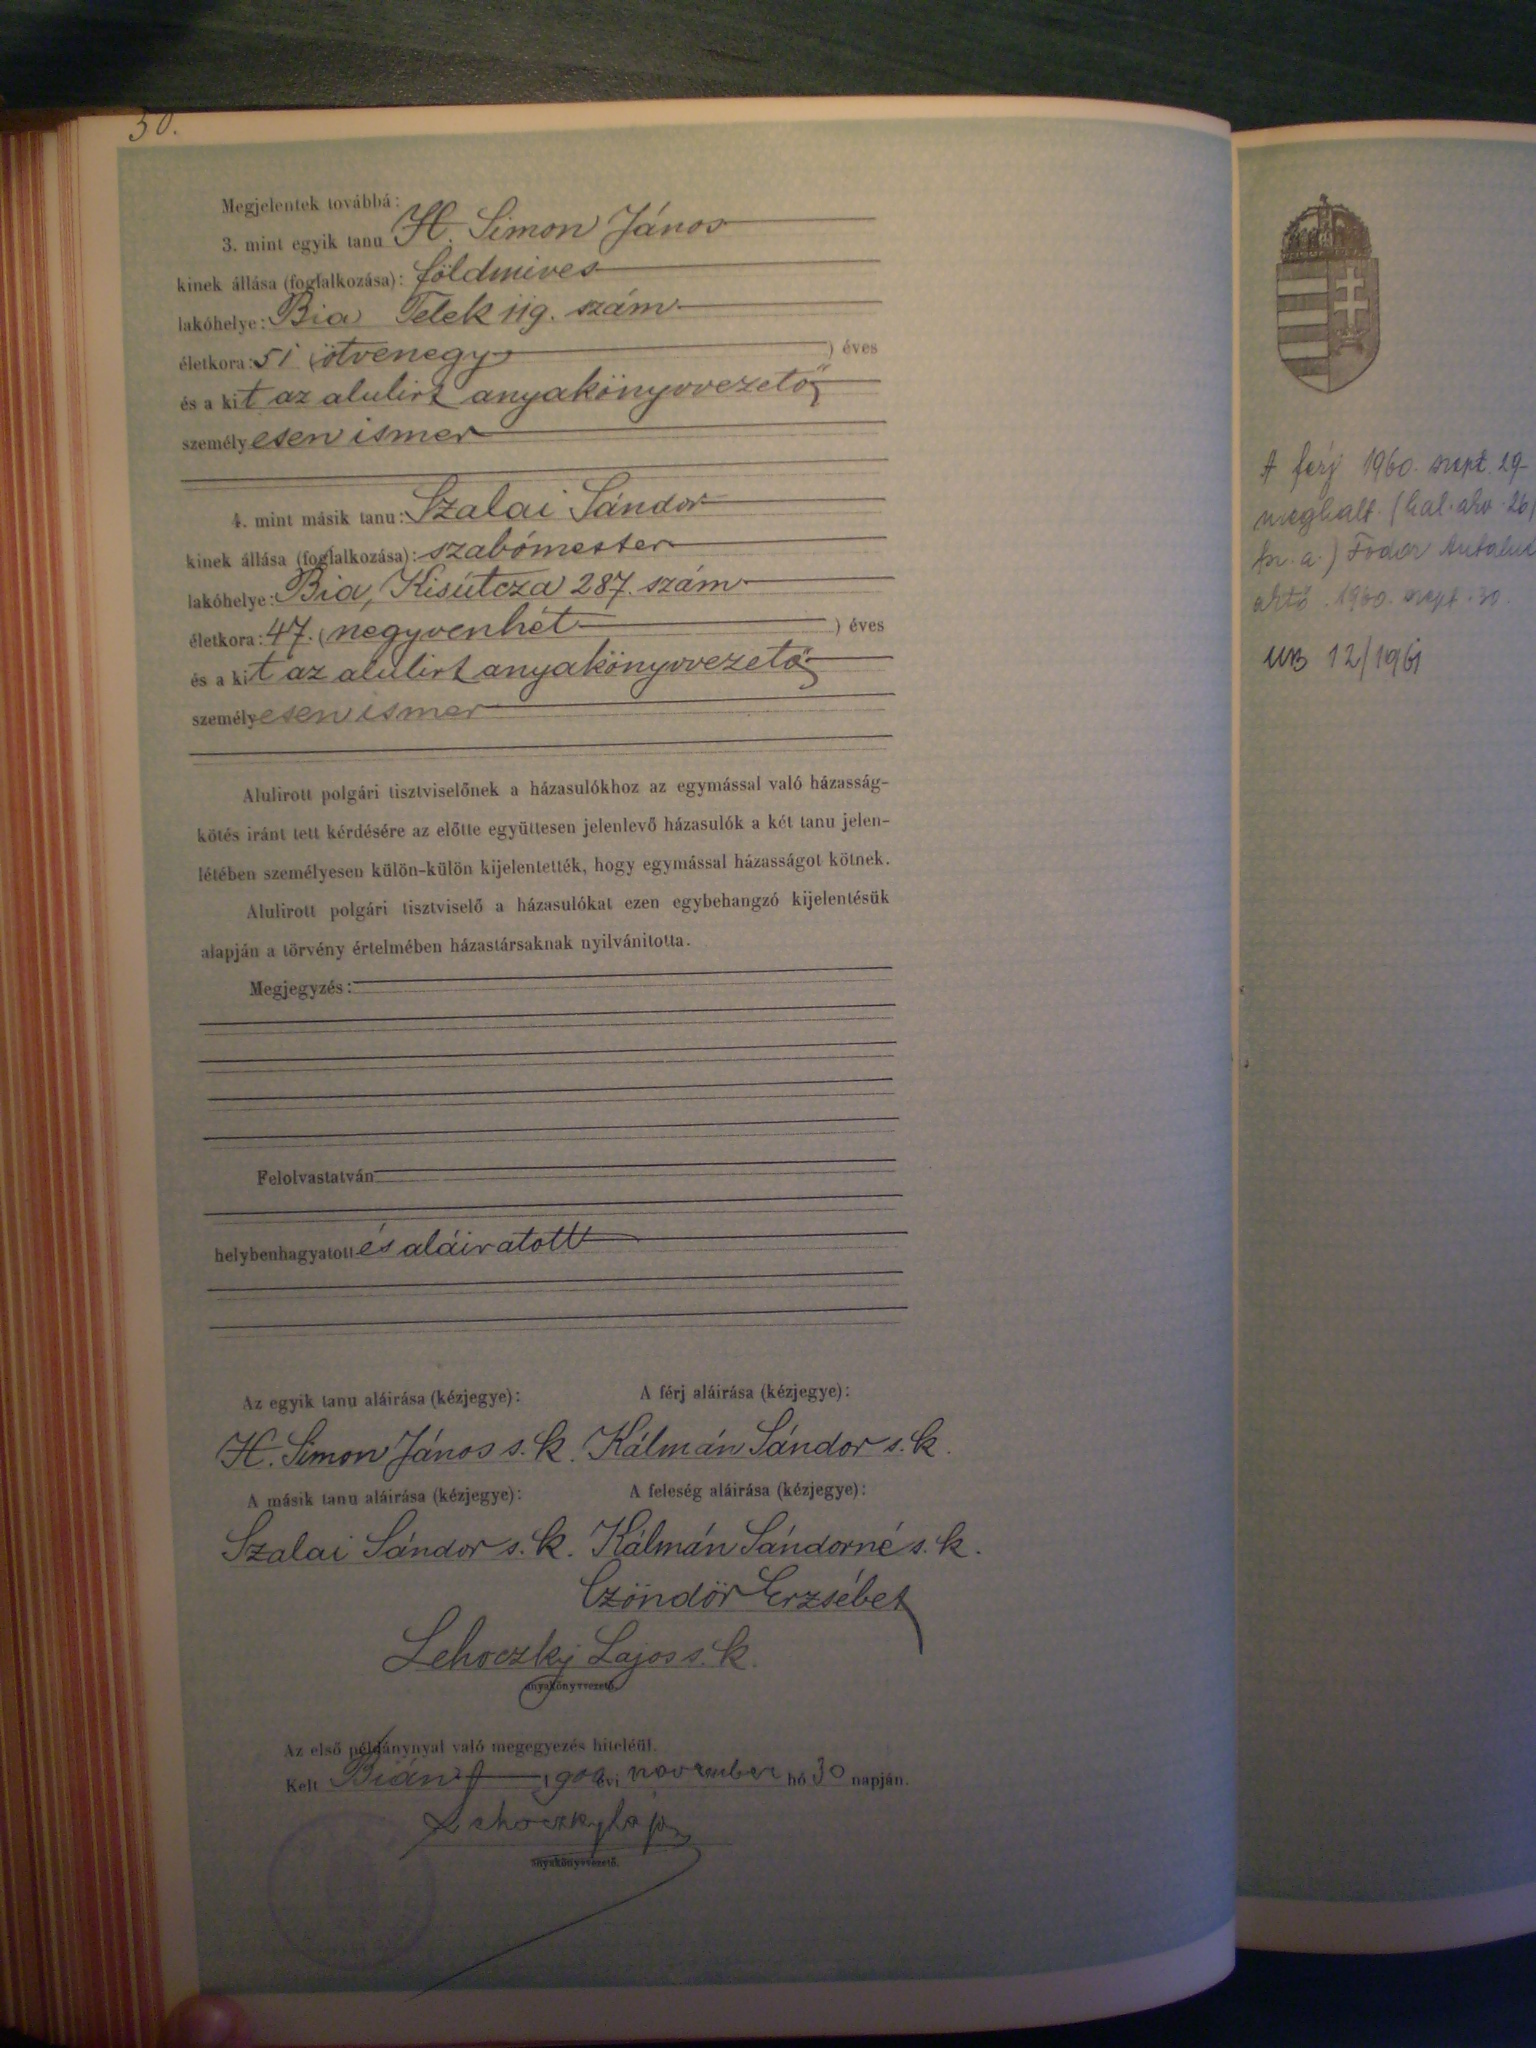 30.
Megjelentek továbbá:
3. mint egyik tanu H. Simon János
kinek állása (foglalkozása): földmives
lakóhelye: Bia Telek 119. szám
életkora: 51 (ötvenegy ) éves
és a kit az alulirt anyakönyvvezető
személyesen ismer
4. mint másik tanu: Szalai Sándor
kinek állása (foglalkozása): szabómester
lakóhelye: Bia, Kisútcza 287. szám
életkora: 47. (negyvenhét ) éves
és a kit az alulirt anyakönyvvezető
személyesen ismer
Alulirott polgári tisztviselőnek a házasulókhoz az egymással való házasság-
kötés iránt tett kérdésére az előtte együttesen jelenlevő házasulók a két tanu jelen-
létében személyesen külön-külön kijelentették, hogy egymással házasságot kötnek.
Alulirott polgári tisztviselő a házasulókat ezen egybehangzó kijelentésük
alapján a törvény értelmében házastársaknak nyilvánitotta.
Megjegyzés:
Felolvastatván
helybenhagyatott és aláiratott
Az egyik tanu aláirása (kézjegye): A férj aláirása (kézjegye):
H. Simon János s. k. Kálmán Sándor s. k.
A másik tanu aláirása (kézjegye): A feleség aláirása (kézjegye):
Szalai Sándor s. k. Kálmán Sándorné s. k.
Czöndör Erzsébet
Lehoczky Lajos s. k.
anyakönyvvezető.
Az első példánynyal való megegyezés hiteléül.
Kelt Bián évi november hó 30 napján.
Lehoczky Lajos
anyakönyvvezető.
A férj 1960. szept. 29-
meghalt. (hal. akv. 26/
Fodor Antalné
1960. szept. 30.
12/1961